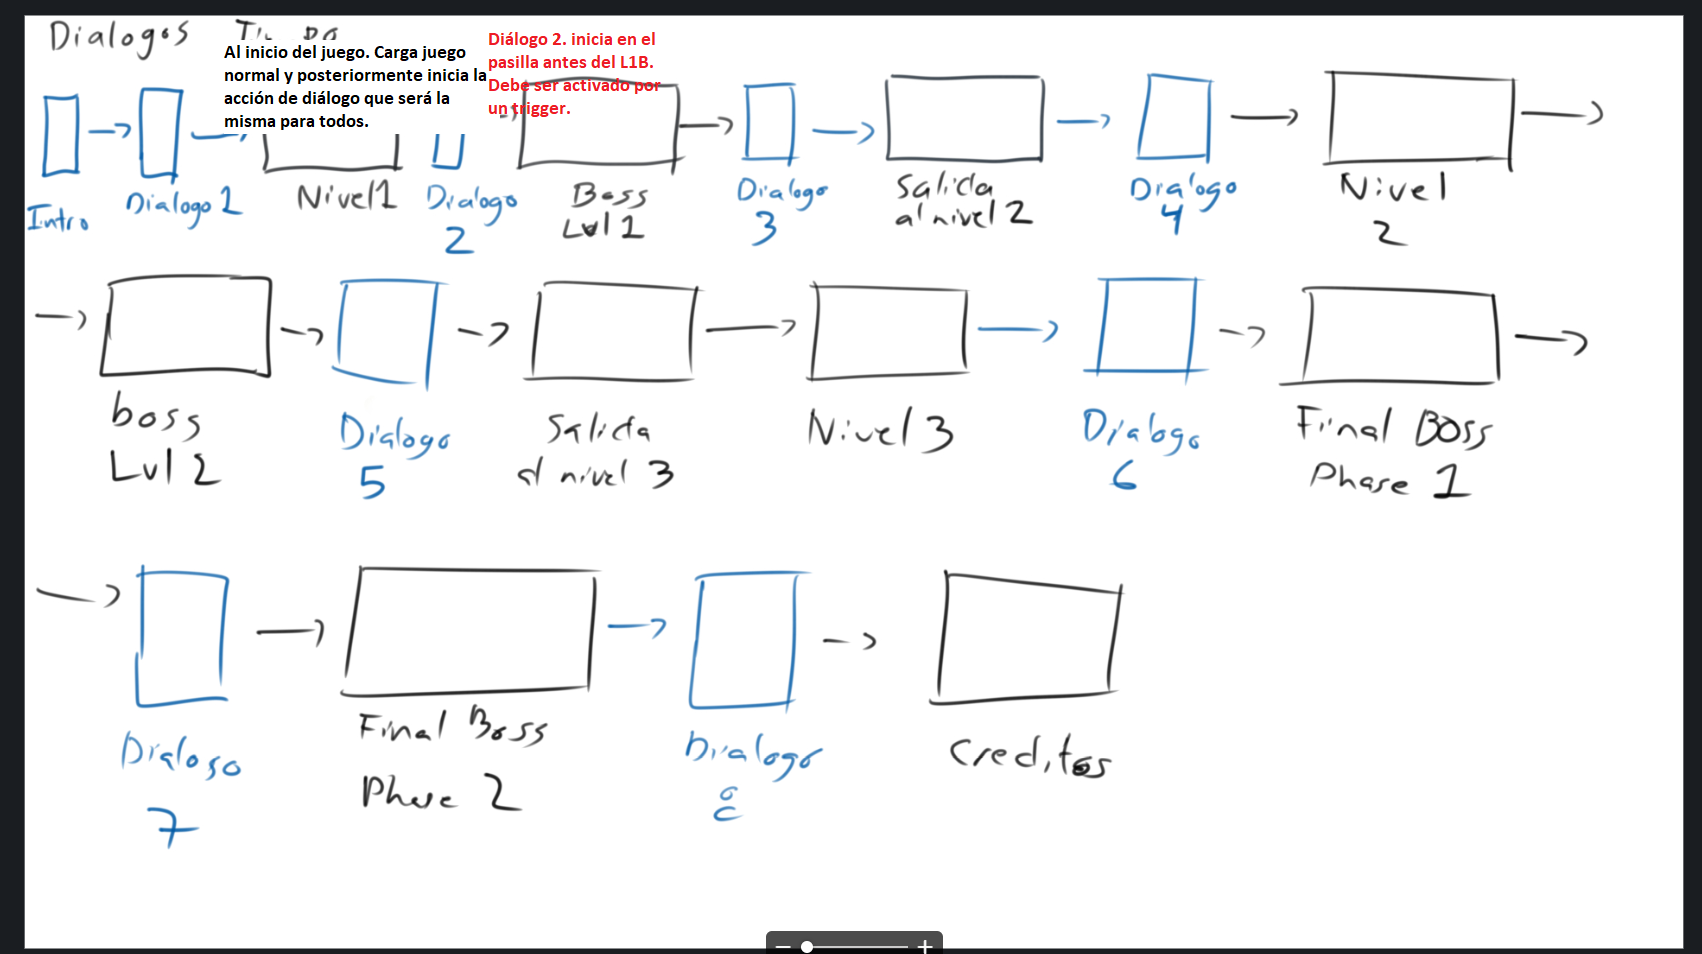 Dialogos
Al inicio del juego. Carga juego
normal y posteriormente inicia la
acción de diálogo que será la
misma para todos.
Diálogo 2. inicia en el
pasilla antes del L1B.
Debe ser activado por
un trigger.
Intro
Dialogo 1
Nivel 1
Dialogo
2
Boss
Lvl 1
Dialogo
3
Salida
al nivel 2
Dialogo
4
Nivel
2
boss
Lvl 2
Dialogo
5
Salida
al nivel 3
Nivel 3
Dialogo
6
Final Boss
Phase 1
Dialogo
7
Final Boss
Phase 2
Dialogo
8
Creditos